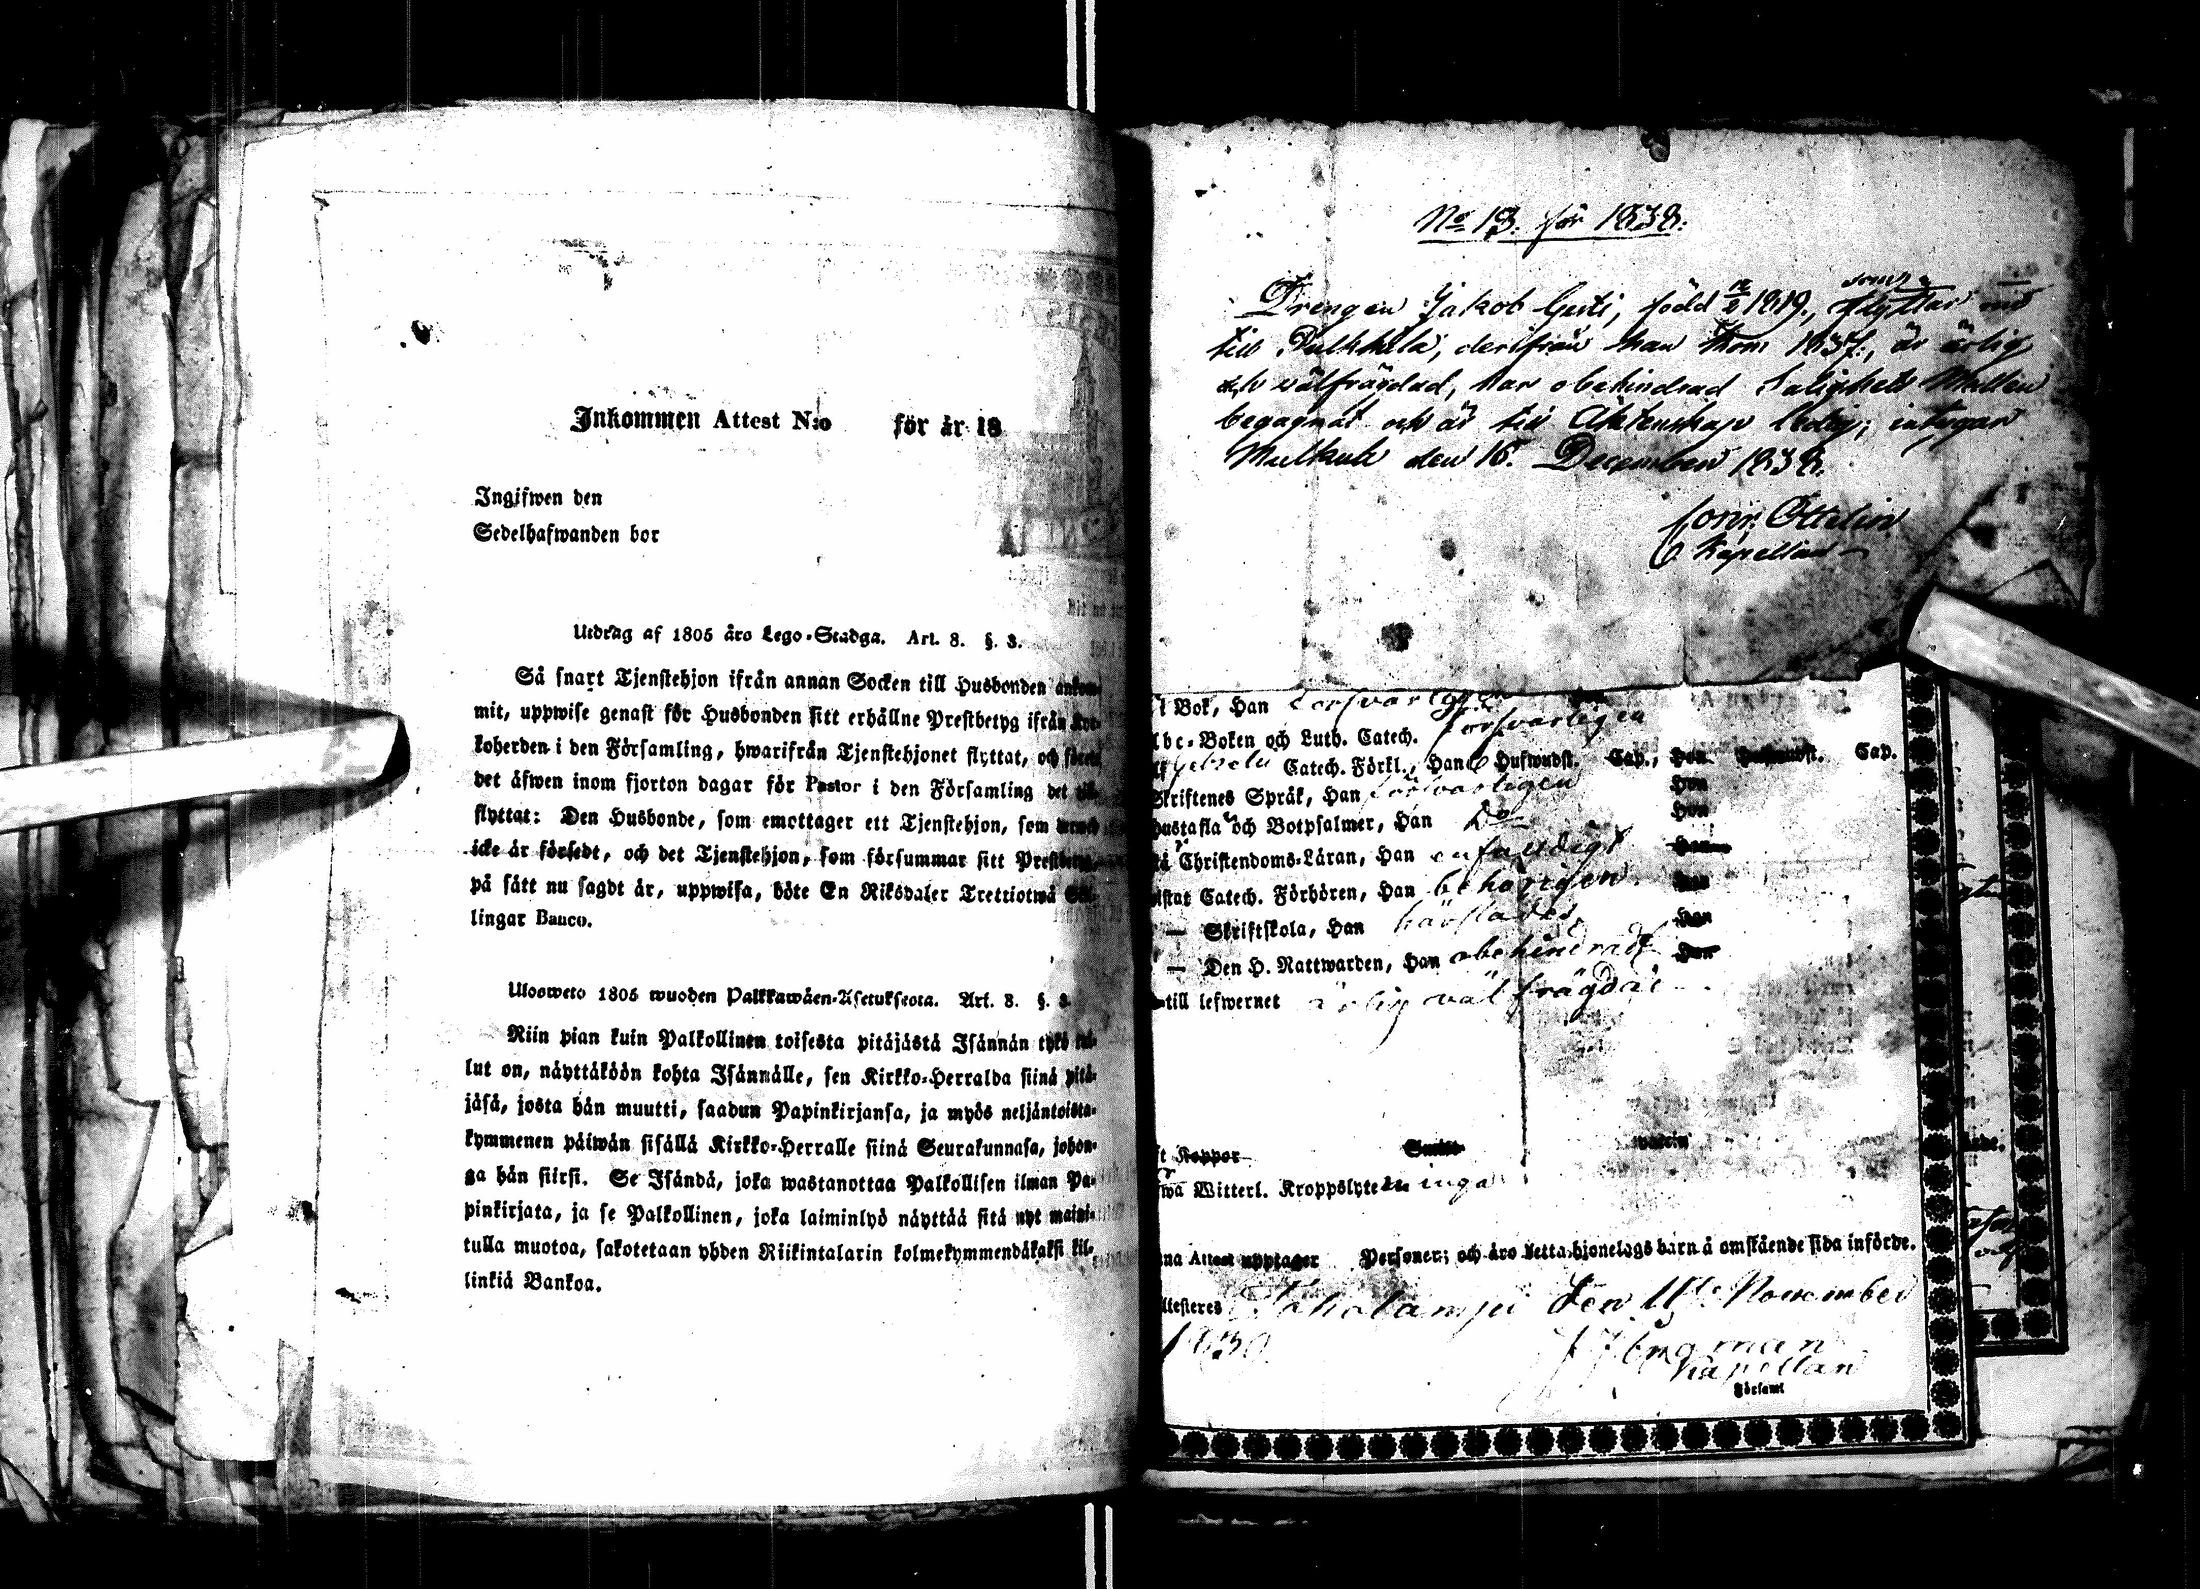 Inkommen Attest N:o för år 18
Ingifwen den
Sedelhafwanden bor
Utdrag af 1805 års Lego-Stadga. Art. 8. §. 3.
Så snart Tjenstehjon ifrån annan Socken till Husbonden ankom-
mit, uppwise genast för Husbonden sitt erhållne Prestbetyg ifrån Kyr-
koherden i den Församling, hwarifrån Tjenstehjonet flyttat, och
det äfwen inom fjorton dagar för Pastor i den Församling det
flyttat: Den Husbonde, som emottager ett Tjenstehjon, som
icke är försedt, och det Tjenstehjon, som försummar sitt Prestbetyg,
på sätt nu sagdt är, uppwisa, böte En Riksdaler Trettiotwå
lingar Banco.
Ulosweto 1805 wuoden Palkkawäen-Asetuksesta. Art. 8. §. 3.
Niin pian kuin Palkollinen toisesta pitäjästä Isännän tykö tul-
lut on, näyttäköön kohta Isännälle, sen Kirkko-Herralda siinä pitä-
jäsä, josta hän muutti, saadun Papinkirjansa, ja myös neljäntoista-
kymmenen päiwän sisällä Kirkko-Herralle siinä Seurakunnasa, johon-
ga hän siirsi. Se Isändä, joka wastanottaa Palkollisen ilman Pa-
pinkirjata, ja se Palkollinen, joka laiminlyö näyttää sitä nyt maini-
tulla muotoa, sakotetaan yhden Riikintalarin kolmekymmendäkaksi kil-
linkiä Bankoa.
No 13. för 1838.
Drengen Jakob född 1819., flyttar
till Pulkkila, derifrån han kom 1837., är ärlig
och wälfrägdad, har obehindrad Salighets Medlen
begagnat och är till Äktenskap ledig; intygar
den 16. December 1838.
Ottelin
Kapellan
i Bok, Han försvarligen
Abc-Boken och Luth. Catech. försvarligen
Catech. Förkl., Han Hufwudst. Cap., Hon Hufwudst. Cap.
Skriftenes Språk, Han försvarligen Hon
Hustafla och Botpsalmer, Han Do Hon
Christendoms-Läran, Han enfaldigt Hon
Catech. Förhören, Han behörigen. Hon
— Skriftskola, Han Hon
— Den H. Nattwarden, Han obehindradt Hon
till lefwernet ärlig väl frägdad
Koppor
Witterl. Kroppslyte inga
Attest upptager Personer; och äro detta hjonelags barn å omstående sida införde.
Attesteres Toholampi den November
Kapellan
Församl